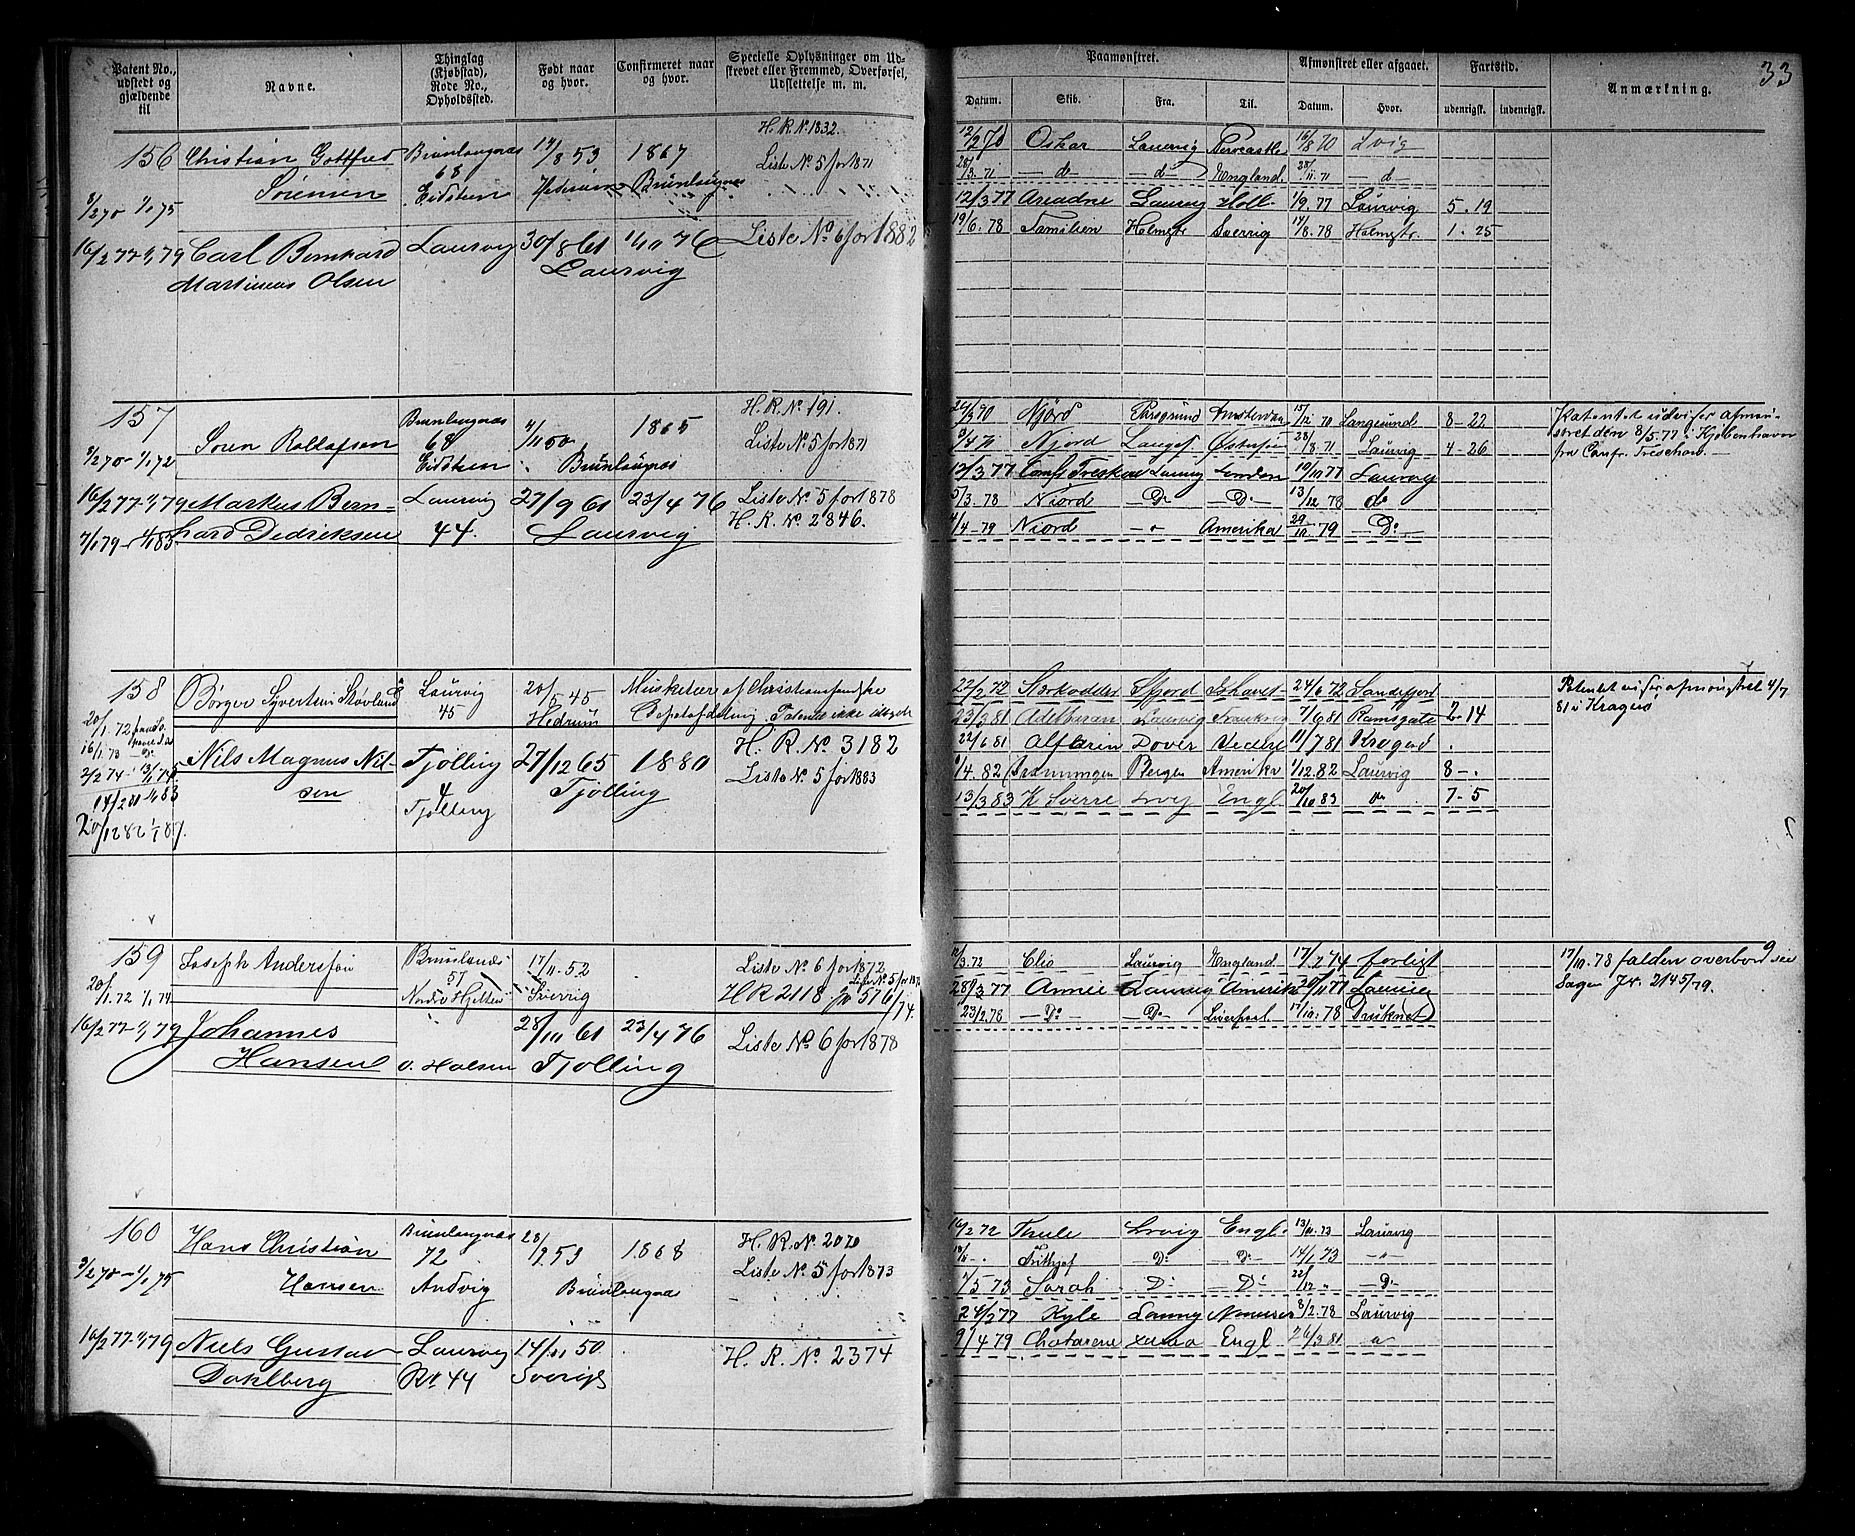 33
Patent No., udstedt og gjældende til
Navne.
Thinglag (Kjøbstad), Rode No., Opholdssted.
Født naar og hvor.
Confirmeret naar og hvor.
Specielle Oplysninger om Udskrevet eller Fremmed, Overførsel, Udslettelse m. m.
Paamønstret.
Datum. Skib. Fra. Til.
Afmønstret eller afgaaet.
Datum. Hvor.
Fartstid.
udenrigsk. indenrigsk.
Anmærkning.
H. R. No 1832.
156 Christian Gottfred Brunlaugnæs 17/8 53 1867 Liste No 5 for 1871
Sørensen 68 Brunlaugnæs
3/2 70 1/1 75 Eidsten
16/2 77-1/1 79 Carl Bernhard Laurvig 30/8 61 1/10 76 Liste No 6 for 1882
Martinius Olsen Laurvig
12/2 70 Oskar Laurvig Newcastle 16/8 70 Lvig
28/3 71 — d — — d England 28/11 71 — d
12/3 77 Ariadne Laurvig Holl. 1/9 77 Laurvig 5 . 19
19/6 78 Familien Holmstr. Sverrig 17/8 78 Holmstr. 1 . 25
157 Brunlaugnæs H. R. No 191.
Søren Rollofsen 68 4/11 50 1865 Liste No 5 for 1871
3/2 70 - 1/1 72 Eidsten Brunlaugnæs
16/2 77-1/1 79 Markus Bern= Laurvig 27/9 61 23/4 76 Liste No 5 for 1878
7/1 79 - 1/1 83 hard Dedriksen 44. Laurvig H. R. No 2846.
Njord Porsgrund Amsterdam 15/12 70 Langesund 8 - 22
Njord Langes Østersøen 28/8 71 Laurvig 4 26
12/3 77 Conf. Treskow Laurvig London 10/10 77 Laurvig
5/3 78 Niord Do Do 13/12 78 do
4/4 79 Niord — " Amerika 29/10 79 — Do
Patentet udviser afmøn-
stret den 8/5 77 i Kjøbenhavn
fra Conf. Treschow. —
158 Børger Syvertsen Laurvig 20/5 45 Musketær af Christiansandske
45 Hedrum Depotafdeling. Patent ikke
20/1 72
16/1 73
Nils Magnus Nil- Tjølling 27/12 65 1880 H. R. No 3182
sen 4 Tjølling Liste No 5 for 1883
14/2 81 1/1 83 Tjølling
20/12 82 1/1 87.
22/2 72 Stærkodder Sfjord Ishavet 24/6 72 Sandefjord
23/3 81 Adelbaran Laurvig 7/6 81 Ramsgate 2 - 14
22/6 81 Dover 11/7 81 Kragerø
1/4 82 Bergen Amerika 1/12 82 Laurvig 8 -
13/3 83 K Sverre Lvig Engl 20/10 83 do 7 - 5
Patentet viser afmønstret 4/7
81 i Kragerø
159 Joseph Andersson Brunlaugnæs 17/11 52 Liste No 6 for 1872
57 Liste No 5 for 187
20/1 72 1/1 74 Sverrig H R 2118 Jr 576/74.
16/2 77-1/1 79 Johannes 28/10 61 23/4 76 Liste No 6 for 1878
Hansen v. Halsen Tjølling
Clio Laurvig England 17/2 74 forligt
28/3 77 Annie Laurvig Amerika Laurvig
23/2 78 — Do — Do Liverpool 17/10 78 Druknet
17/10 78 falden overbord see
Sagen Jr. 2145/79.
160 Hans Christian Brunlaugnæs 28/9 53 1868 H. R. No 2070
3/2 70 - 1/1 75 Hansen 72 Liste No 5 for 1873
Andvig Brunlaugnæs
16/2 77-1/1 79 Niels Gustav Laurvig 14/11 50 H. R. No 2374
Dahlberg Rd 44 Sverige
16/2 72 Thule Lrvig Engl. 13/10 73 Laurvig
Frithjof Do Do 14/1 73 — "
1/5 73 Sarah — Do — Do 22/12 " — Do
24/2 77 Kyle Laurvig 8/2 78 Laurvig
9/4 79 Engl 26/3 81